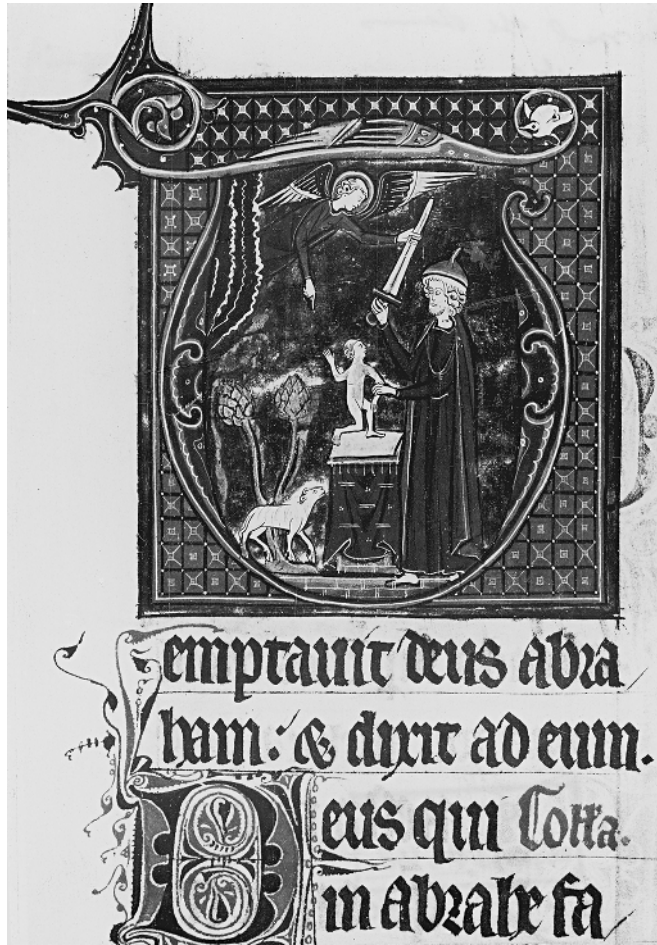 Temptauit deus abra
ham: & dixit ad eum.
Deus qui Coll'a.
in abrahe fa